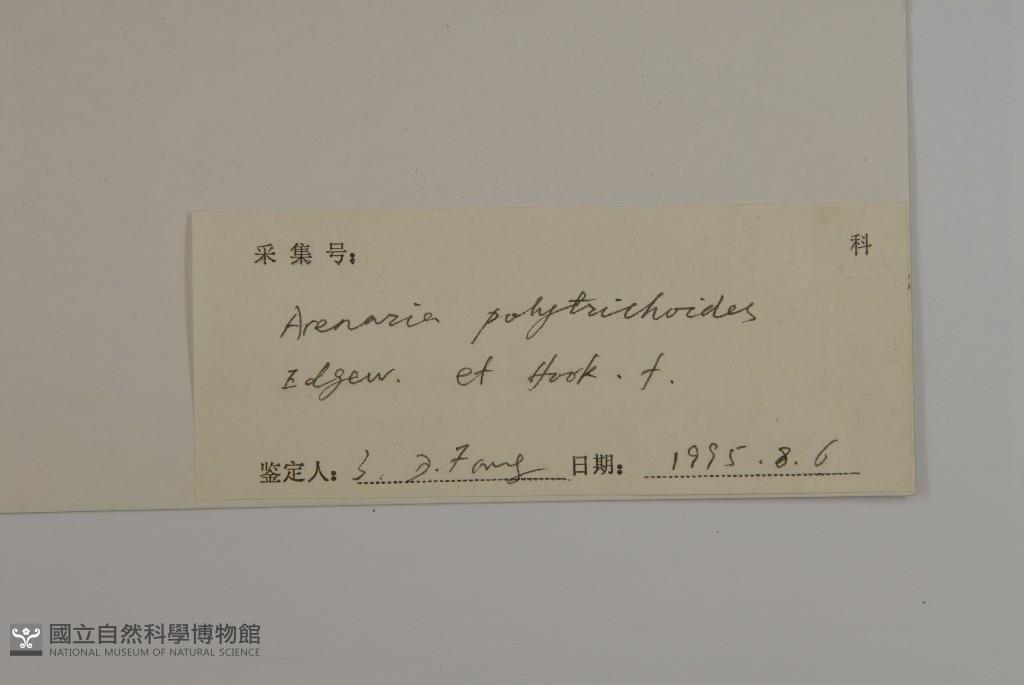 采集号: 科
Arenaria polytrichoides
Edgew. et Hook. f.
鉴定人: D. Fang 日期: 1995.8.6
國立自然科學博物館
NATIONAL MUSEUM OF NATURAL SCIENCE